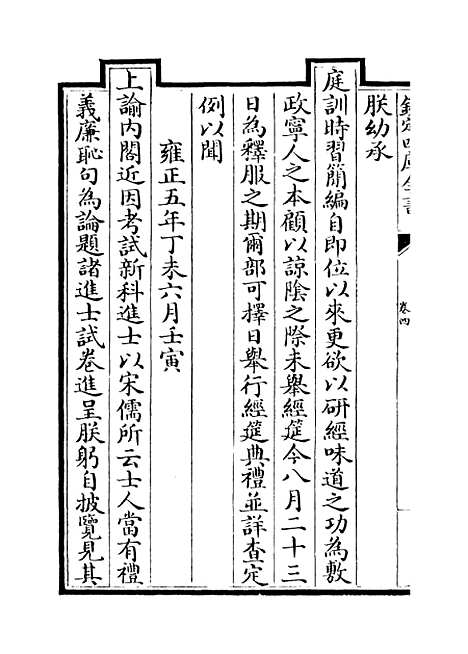 欽定四庫全書
卷四
朕幼承
庭訓時習簡編自即位以來更欲以研經味道之功為敷
政寧人之本顧以諒陰之際未舉經筵今八月二十三
日為釋服之期爾部可擇日舉行經筵典禮並詳查定
例以聞
雍正五年丁未六月壬寅
上諭內閣近因考試新科進士以宋儒所云士人當有禮
義廉恥句為論題諸進士試卷進呈朕躬自披覽見其